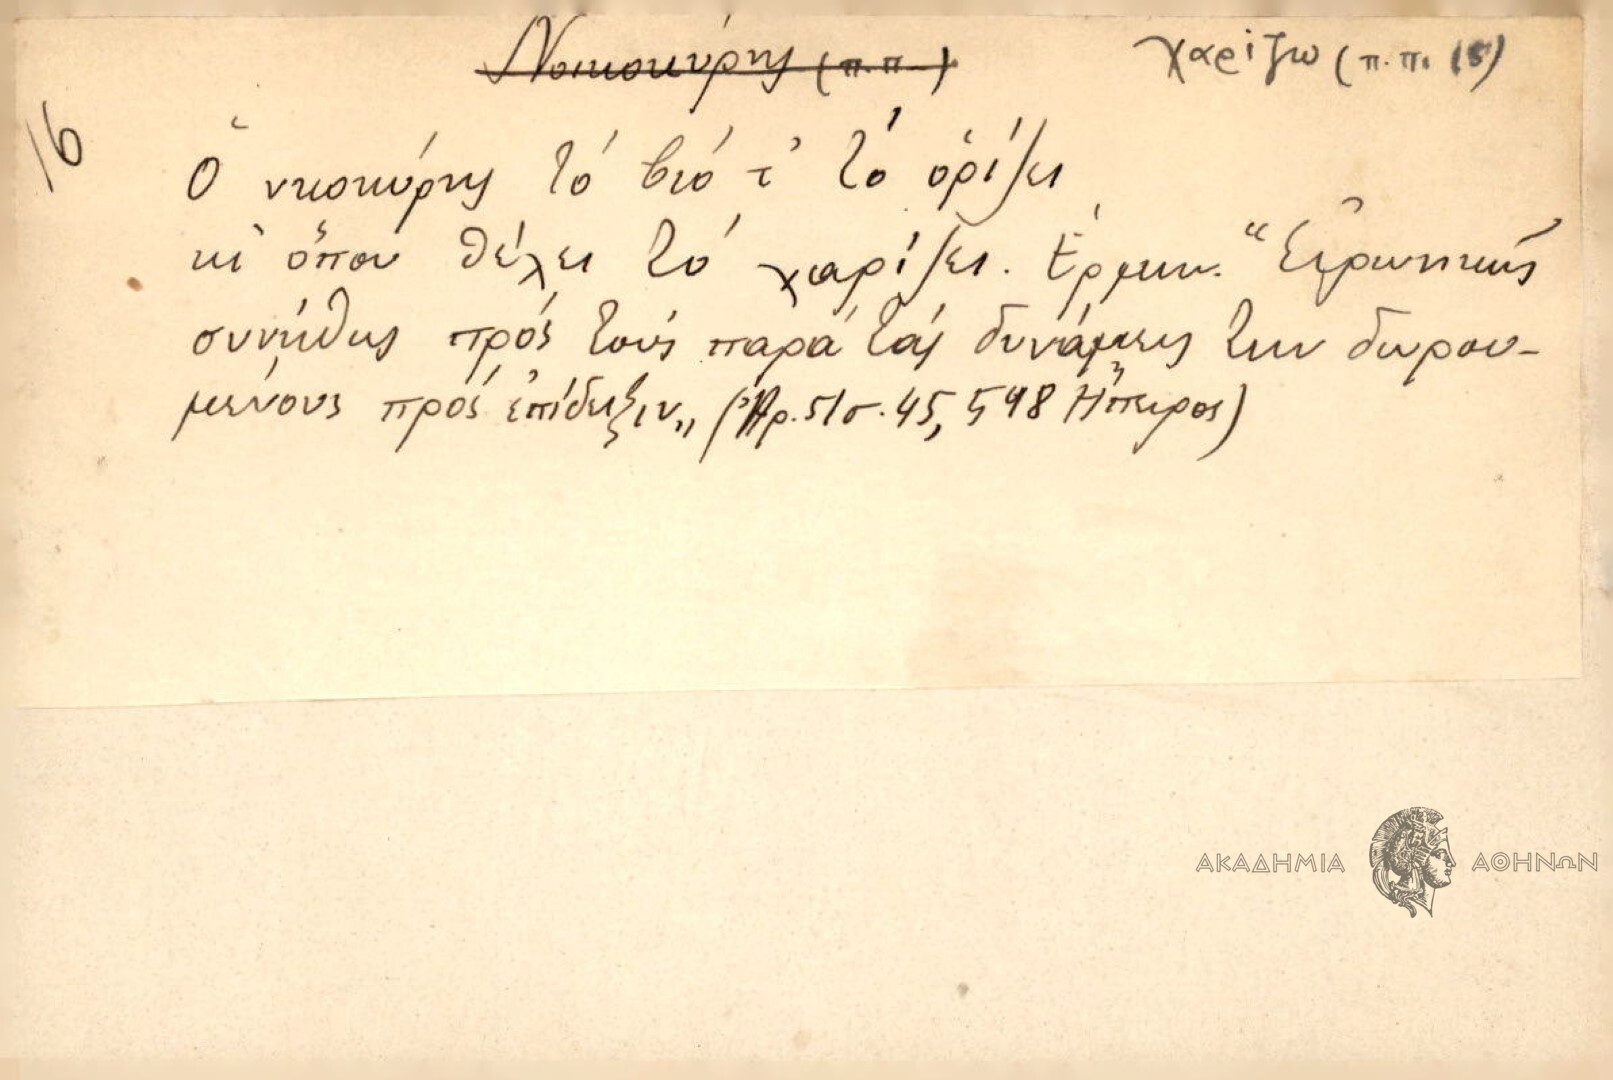 Νοικοκύρης (π.π.) χαρίζω (π.π. 15)
16
Ὁ νκοκύρης τό βιό τ' τό ὁρίζει
κι ὅπου θέλει τό χαρίζει. Ἑρμην. "Εἰρωνικῶς
συνήθως πρός τούς παρά τάς δυνάμεις των δωρου-
μένους πρός ἐπίδειξιν„ (Ἀρ. 51 σ. 45, 598 Ἤπειρος)
ΑΚΑΔΗΜΙΑ ΑΘΗΝΩΝ